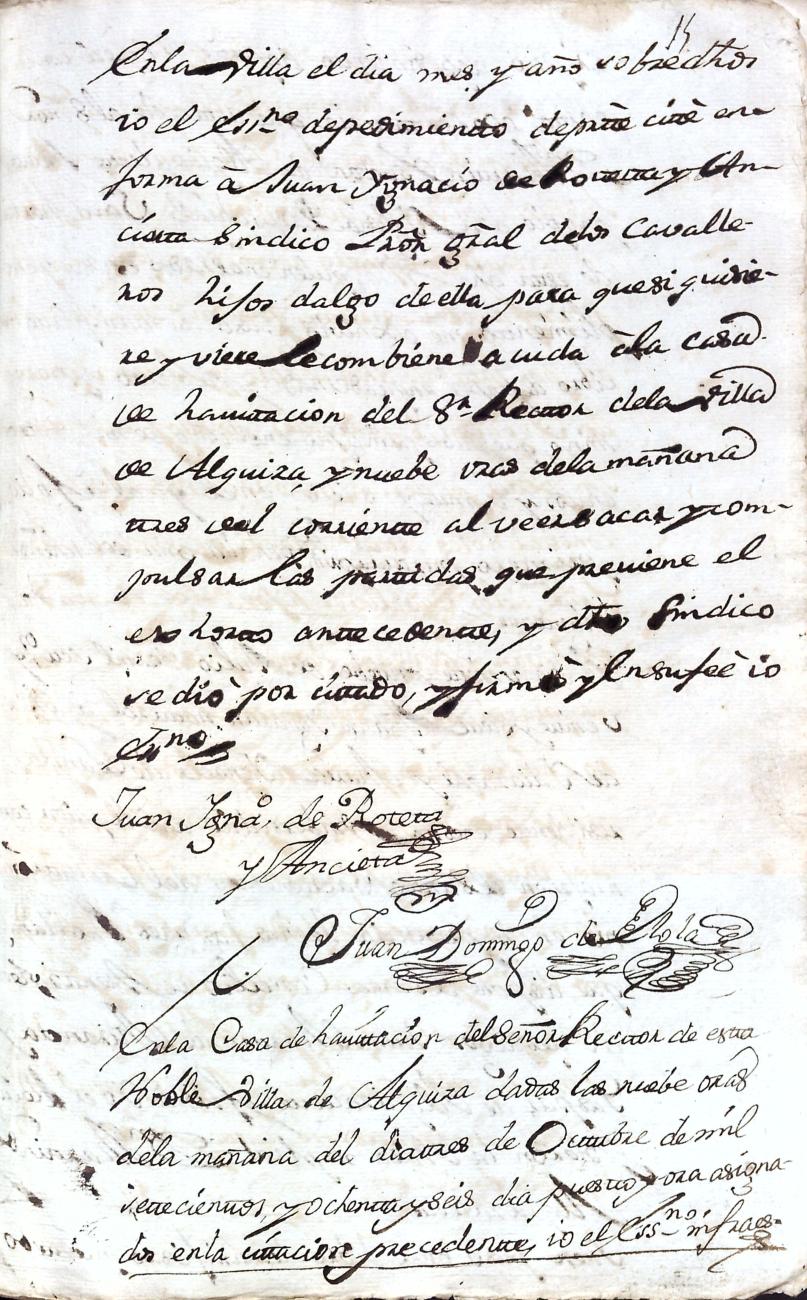 15
En la Villa el dia mes, y año sobredhos
io el Essno de pedimiento de ptte citè en
forma â Juan Ygnacio de Rotetta y An-
cietta Sindico Pror gral delos Cavalle-
ros hijos dalgo de ella para que si quisie-
re y viere le combiene acuda âla casa
de havitacion del Sr Rector dela Villa
de Alquiza, y nuebe oras dela mañana
ttres del corriente al veer sacar y com-
pulsar las parttidas que previene el
exshortto anttecedentte, y dho Sindico
se diò por cittado, y firmò y En su feè io
Essno
Juan Igna.o de Roteta
y Ancieta
Juan Domingo de Elola
En la Casa de havittacion del Señor Recttor de esta
Noble Villa de Alquiza dadas las nuebe oras
dela mañana del dia ttres de Octtubre de mil
settecienttos, y ochentta y seis dia puestto y ora asigna-
dos en la cittacion precedentte, io el Essno infraes-